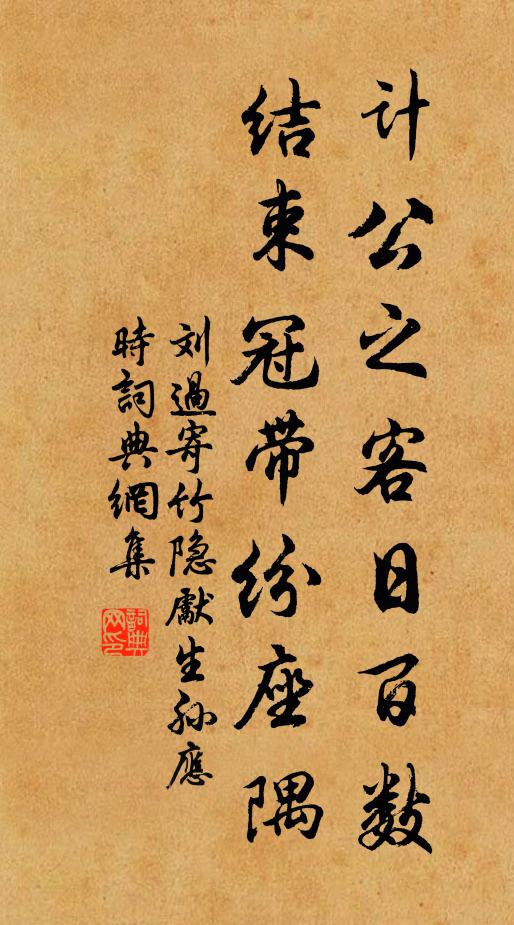 计公之客日百数
结束冠带纷座隅
刘過寄竹隐獻生孙應
時詞典網集
詞典网印